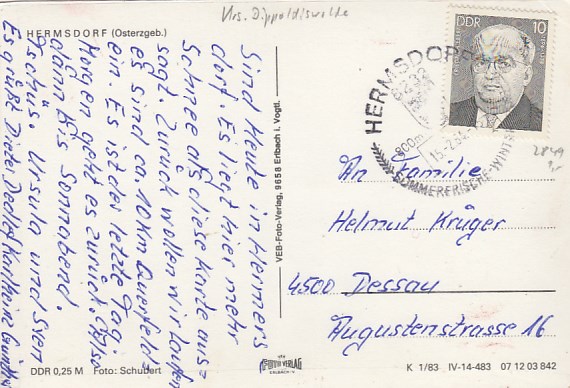 Krs. Dippoldiswalde
HERMSDORF (Osterzgeb.)
Sind heute in Hermers
dorf. Es liegt hier mehr
Schnee als diese Karte aus=
sagt. Zurück wollen wir laufen
es sind ca. 10km Querfeld=
ein. Es ist der letzte Tag
Morgen geht es zurück. Also
dann bis Sonnabend.
Tschüs. Ursula und Sven
Es grüßt Dieter, Detlef, Karlheinz
DDR 0,25 M Foto: Schubert
VEB-Foto-Verlag, 9658 Erlbach i. Vogtl.
VEB
FOTO VERLAG
ERLBACH
DDR 10
HERMSDORF
800m
15.-2.84
SOMMERFRISCHE · WINT
2849
An Familie
Helmut Krüger
4500 Dessau
Augustenstrasse 16
K 1/83 IV-14-483 07 12 03 842